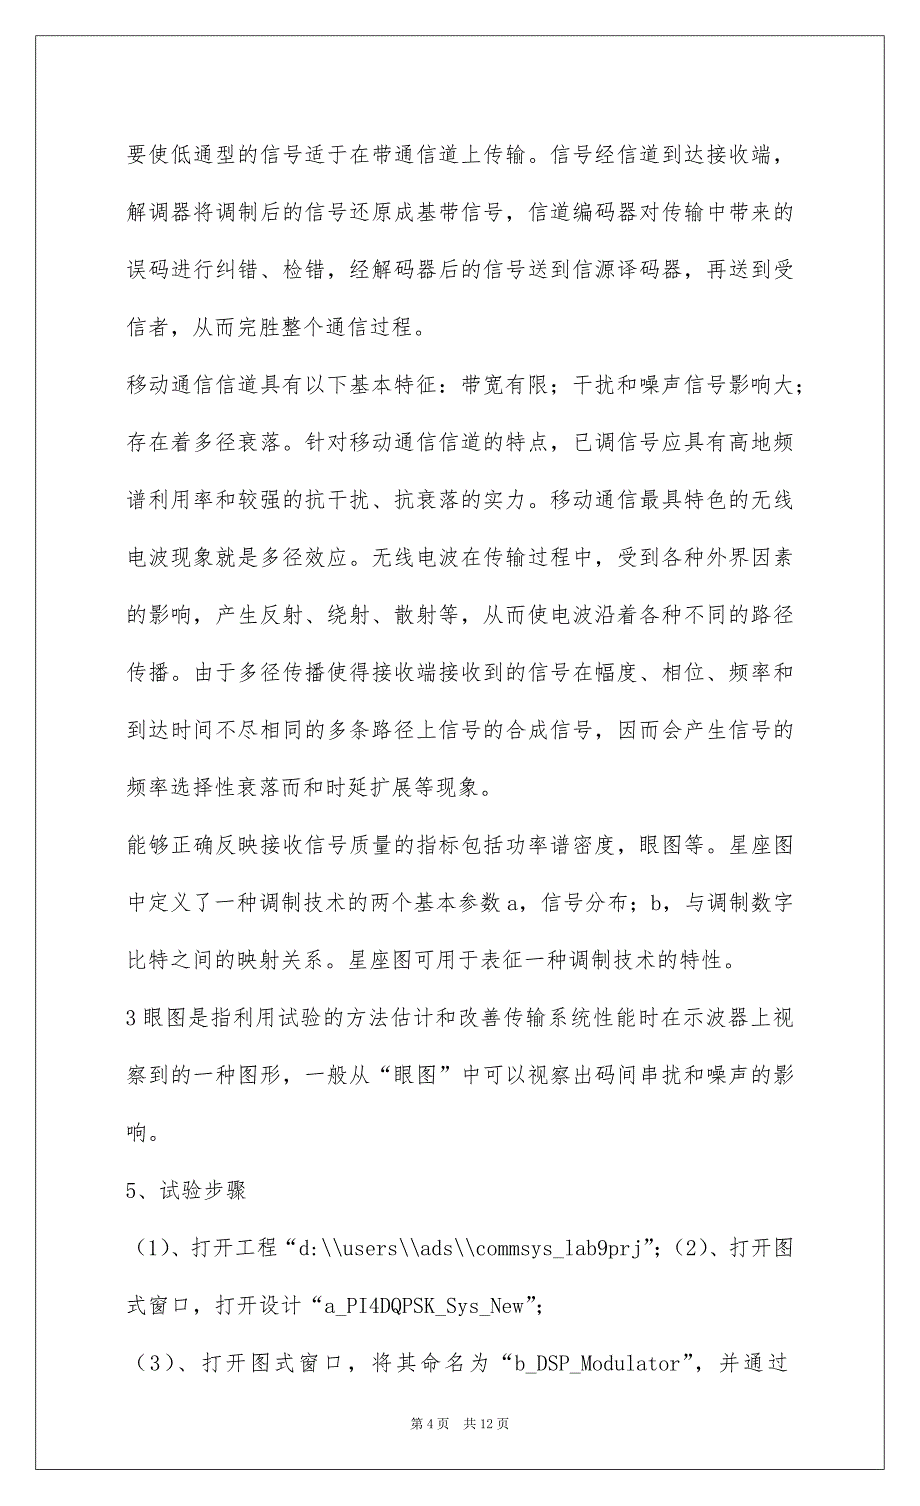 要使低通型的信号适于在带通信道上传输。信号经信道到达接收端，
解调器将调制后的信号还原成基带信号，信道编码器对传输中带来的
误码进行纠错、检错，经解码器后的信号送到信源译码器，再送到受
信者，从而完胜整个通信过程。
移动通信信道具有以下基本特征：带宽有限；干扰和噪声信号影响大；
存在着多径衰落。针对移动通信信道的特点，已调信号应具有高地频
谱利用率和较强的抗干扰、抗衰落的实力。移动通信最具特色的无线
电波现象就是多径效应。无线电波在传输过程中，受到各种外界因素
的影响，产生反射、绕射、散射等，从而使电波沿着各种不同的路径
传播。由于多径传播使得接收端接收到的信号在幅度、相位、频率和
到达时间不尽相同的多条路径上信号的合成信号，因而会产生信号的
频率选择性衰落而和时延扩展等现象。
能够正确反映接收信号质量的指标包括功率谱密度，眼图等。星座图
中定义了一种调制技术的两个基本参数a，信号分布；b，与调制数字
比特之间的映射关系。星座图可用于表征一种调制技术的特性。
3眼图是指利用试验的方法估计和改善传输系统性能时在示波器上视
察到的一种图形，一般从“眼图”中可以视察出码间串扰和噪声的影
响。
5、试验步骤
（1）、打开工程“d:\\users\\ads\\commsys_lab9prj”；（2）、打开图
式窗口，打开设计“a_PI4DQPSK_Sys_New”；
（3）、打开图式窗口，将其命名为“b_DSP_Modulator”，并通过
第4页 共12页